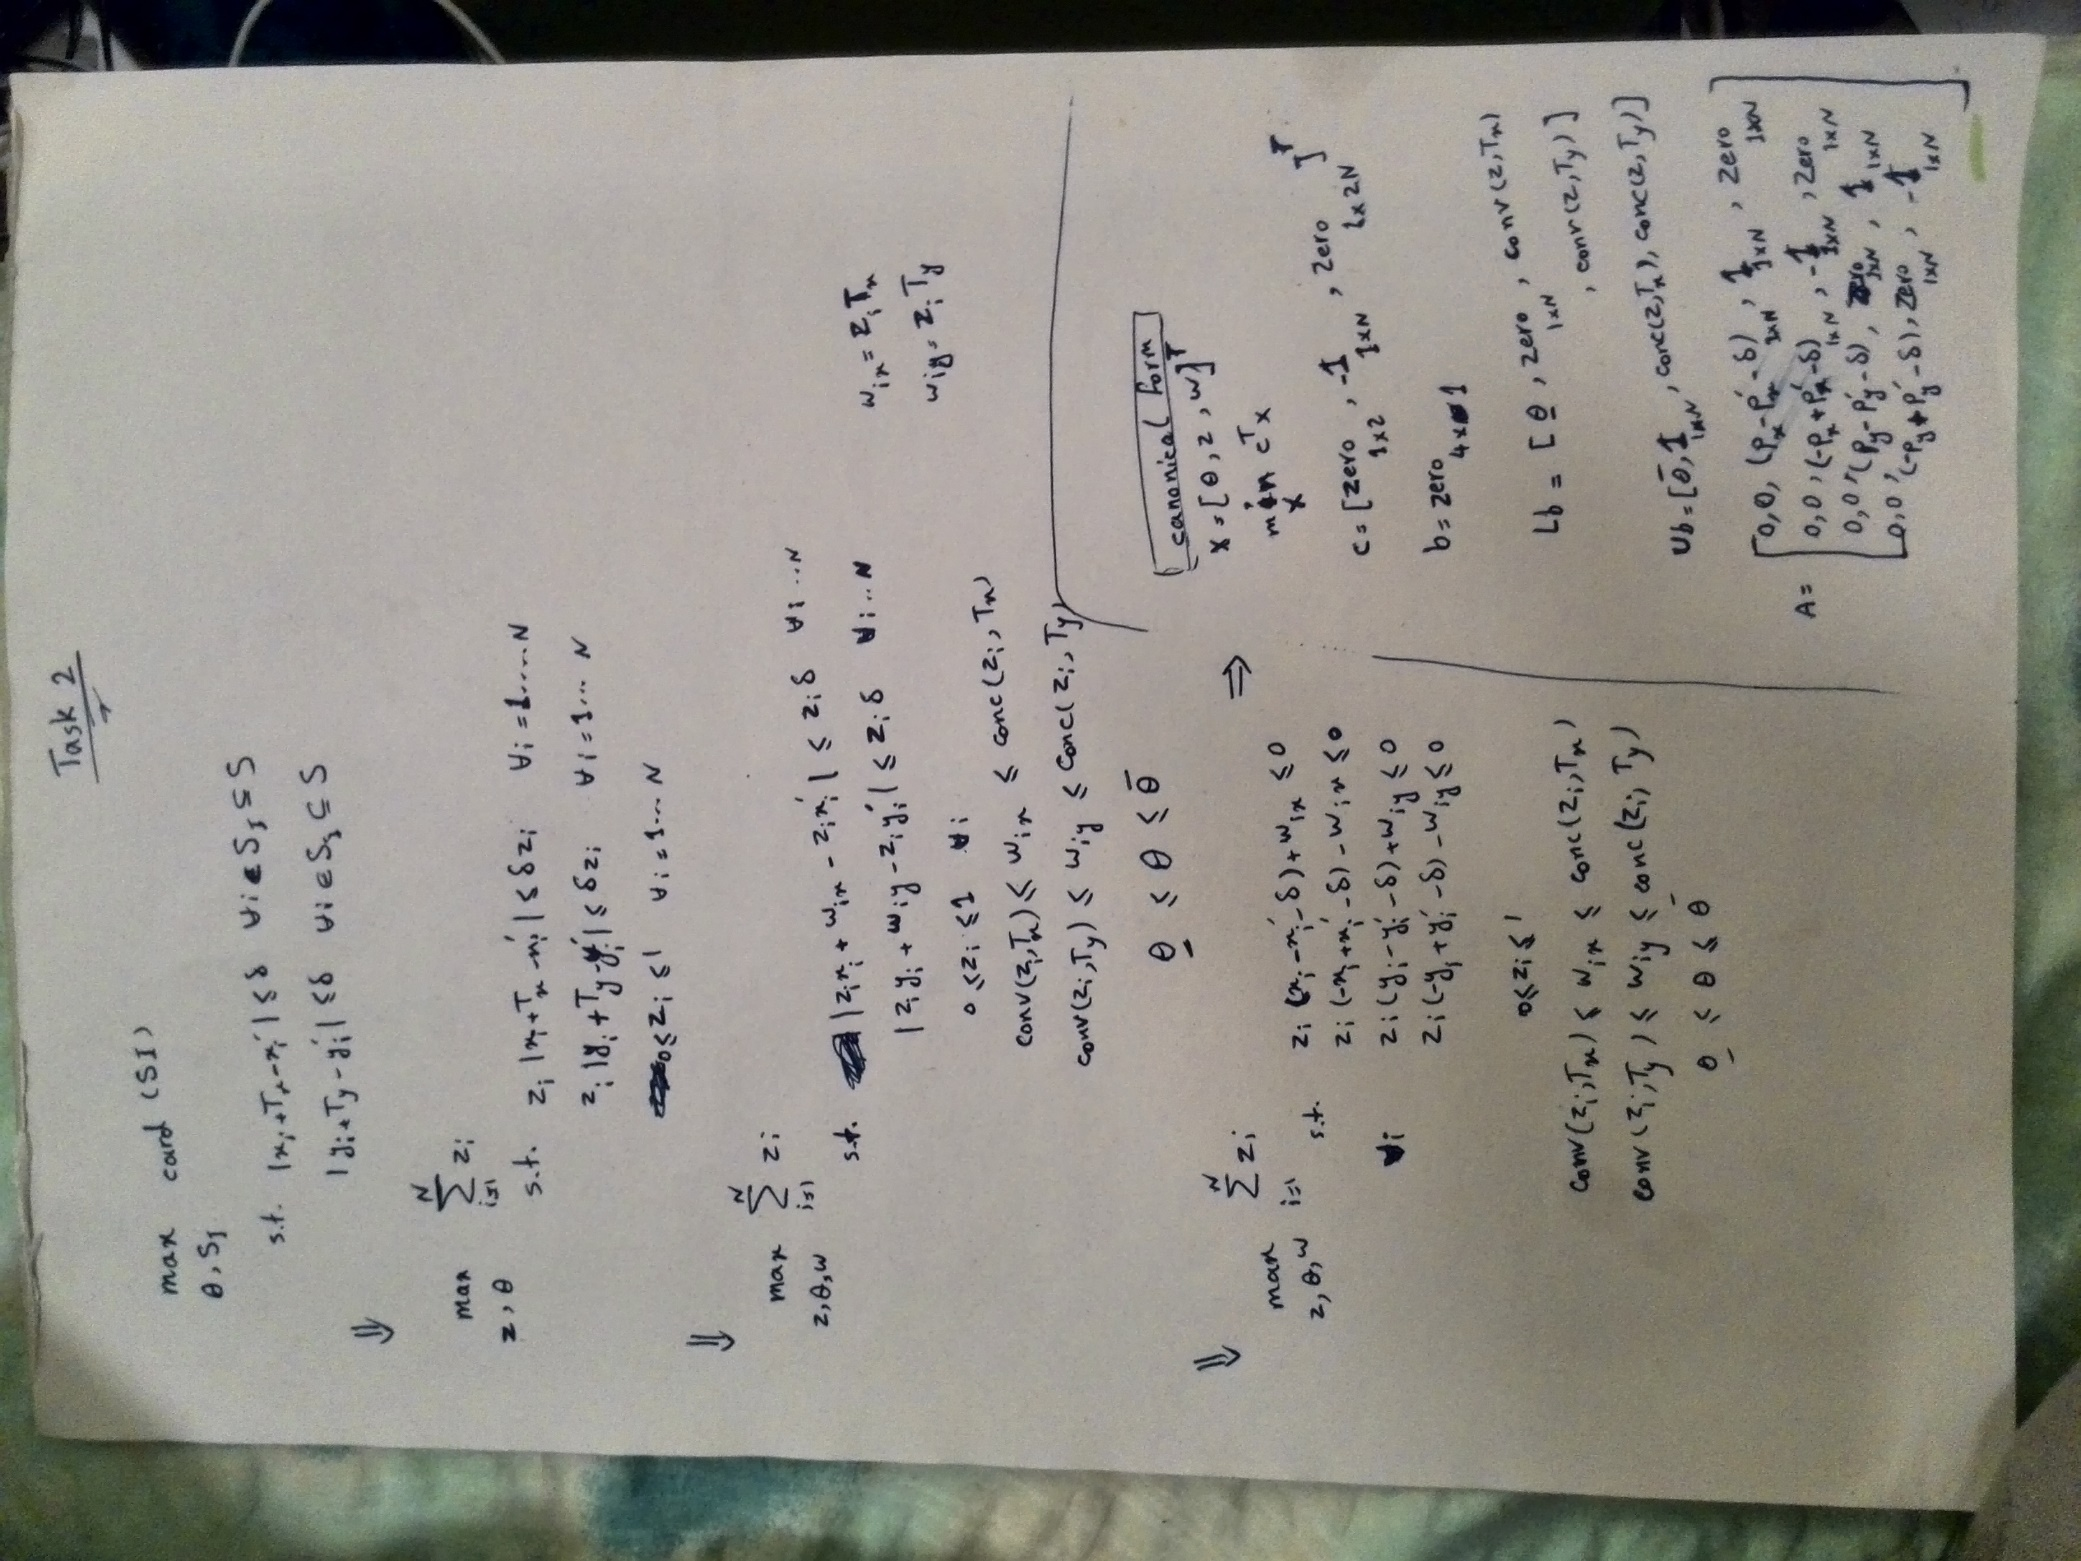 Task 2
max card (SI)
θ, SI
s.t. |xi + Tx - xi'| ≤ δ ∀i ∈ SI ⊆ S
|yi + Ty - yi'| ≤ δ ∀i ∈ SI ⊆ S
⇒ max ∑ zi
z, θ i=1 N
s.t. zi |xi + Tx - xi'| ≤ δzi ∀i = 1....N
zi |yi + Ty - yi'| ≤ δzi ∀i = 1... N
0 ≤ zi ≤ 1 ∀i = 1... N
⇒ max ∑ zi
z, θ, w i=1 N
s.t. |zi xi + wix - zi xi'| ≤ zi δ ∀i...N
|zi yi + wiy - zi yi'| ≤ zi δ ∀i...N
wix = zi Tx
wiy = zi Ty
0 ≤ zi ≤ 1 ∀i
conv(zi, Tx) ≤ wix ≤ conc(zi, Tx)
conv(zi, Ty) ≤ wiy ≤ conc(zi, Ty)
θ ≤ θ ≤ θ̄
⇒ max ∑ zi ⇒
z, θ, w i=1 N
s.t. zi (xi - xi' - δ) + wix ≤ 0
zi (-xi + xi' - δ) - wix ≤ 0
∀i zi (yi - yi' - δ) + wiy ≤ 0
zi (-yi + yi' - δ) - wiy ≤ 0
0 ≤ zi ≤ 1
conv(zi, Tx) ≤ wix ≤ conc(zi, Tx)
conv(zi, Ty) ≤ wiy ≤ conc(zi, Ty)
θ ≤ θ ≤ θ̄
canonical form
x = [θ, z, w]T
min cT x
x
c = [zero 1x2, -1 1xN, zero 1x2N]T
b = zero 4x1
Lb = [θ, zero 1xN, conv(z, Tx)
, conv(z, Ty)]
Ub = [θ̄, 1 1xN, conc(z, Tx), conc(z, Ty)]
A = [0, 0, (Px - Px' - δ) 1xN, 1 1xN, zero 1xN
0, 0, (-Px + Px' - δ) 1xN, -1 1xN, zero 1xN
0, 0, (Py - Py' - δ), zero 1xN, 1 1xN
0, 0, (-Py + Py' - δ), zero 1xN, -1 1xN]